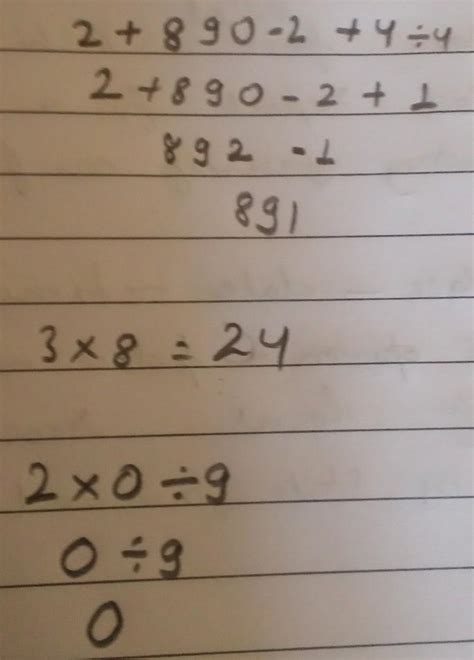 2 + 890 - 2 + 4 ÷ 4
2 + 890 - 2 + 1
892 - 1
891
3 × 8 = 24
2 × 0 ÷ 9
0 ÷ 9
0